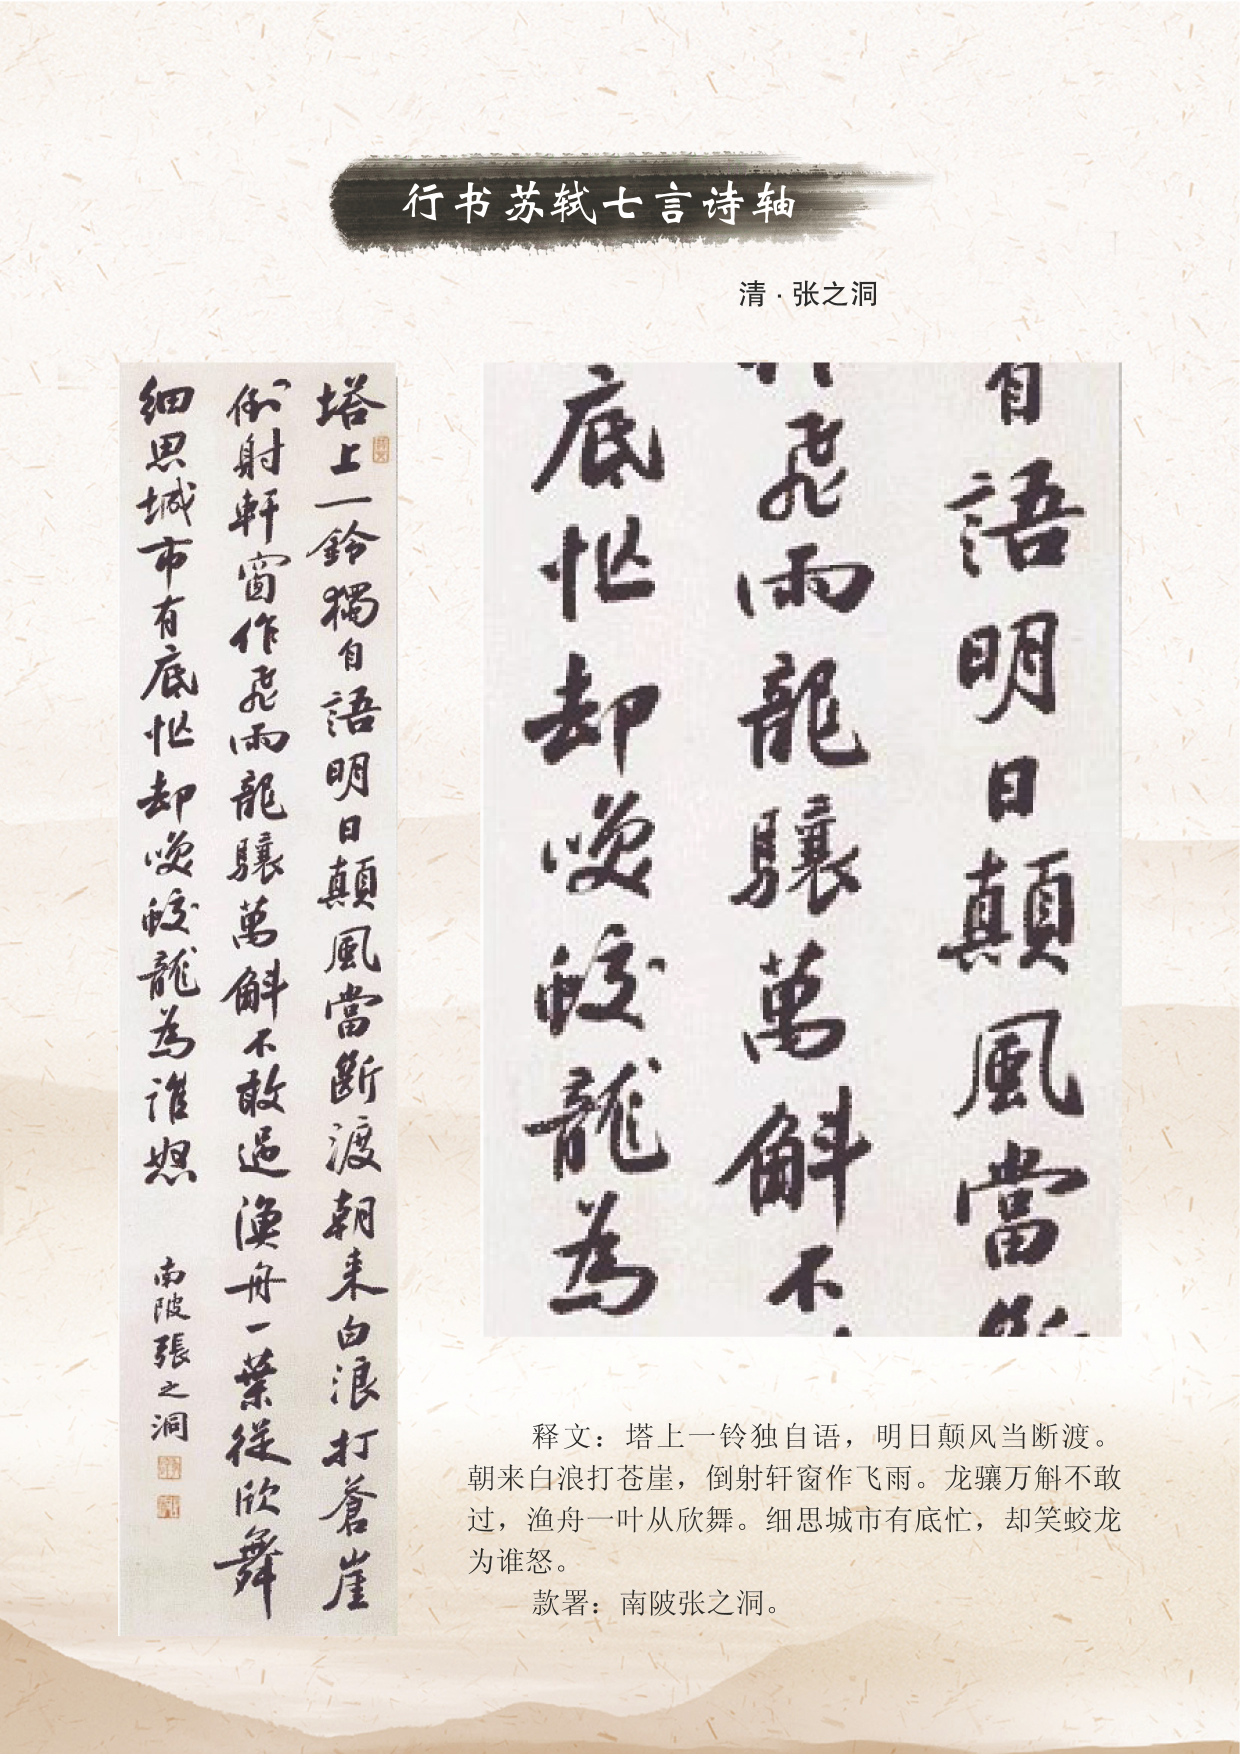 行书苏轼七言诗轴
清·张之洞
塔上一鈴獨自語明日顛風當斷渡朝来白浪打蒼崖
倒射軒窗作飛雨龍驤萬斛不敢過漁舟一葉從欣舞
细思城市有底忙却唉蛟龍為誰怒
南陂張之洞
自語明日顛風當斷
作飛雨龍驤萬斛不
底忙却唉蛟龍為
释文：塔上一铃独自语，明日颠风当断渡。
朝来白浪打苍崖，倒射轩窗作飞雨。龙骧万斛不敢
过，渔舟一叶从欣舞。细思城市有底忙，却笑蛟龙
为谁怒。
款署：南陂张之洞。